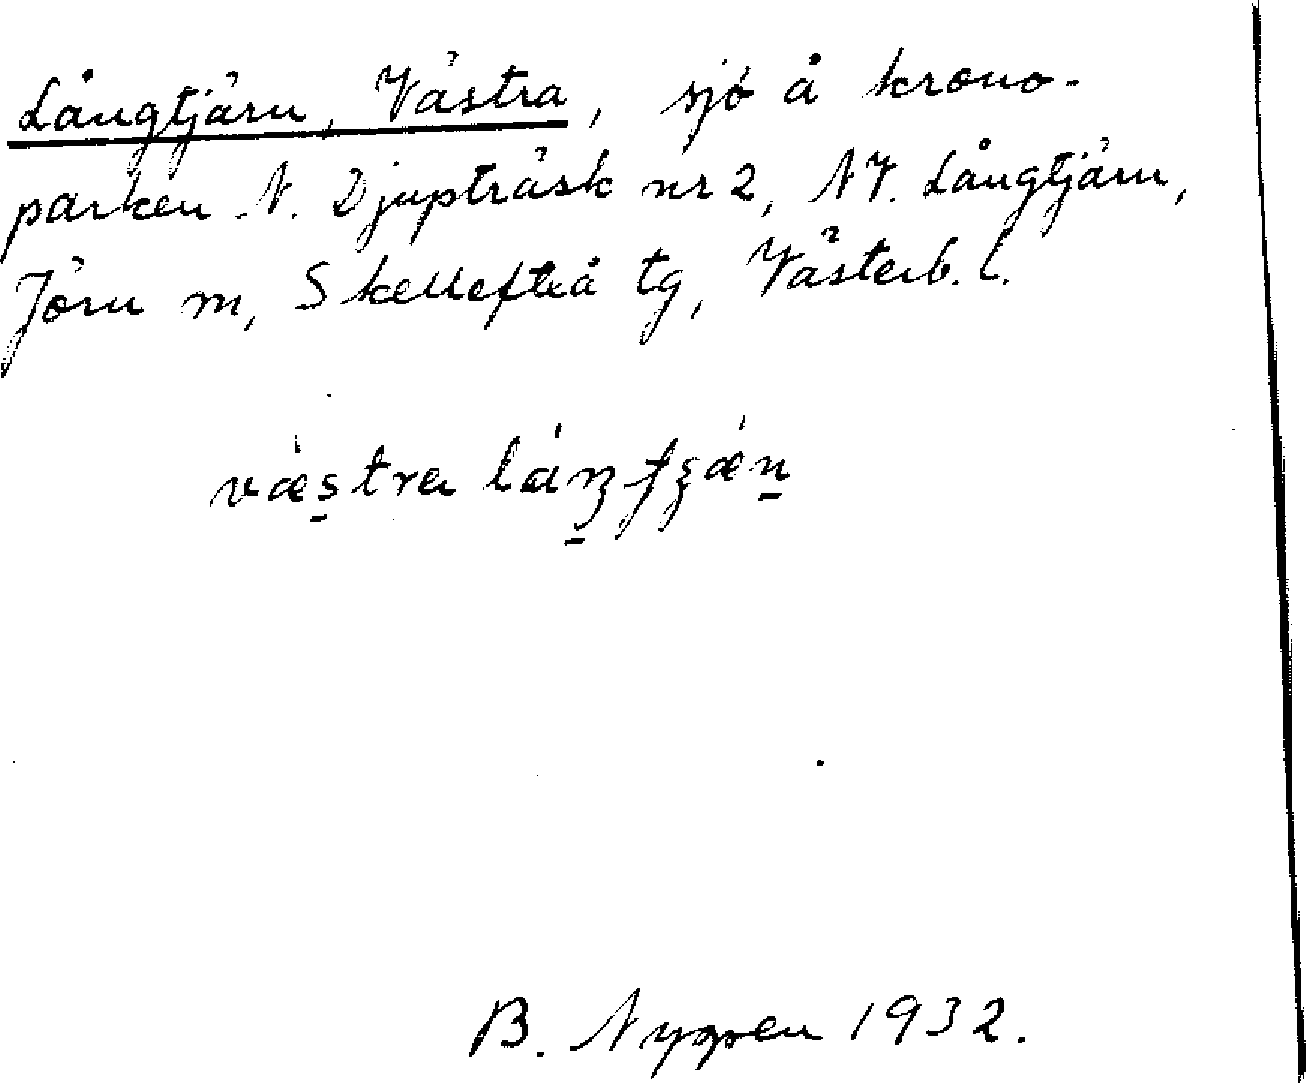 Långtjärn, Västra, sjö å krono-
parken N. Djupträsk nr 2, NV. Långtjärn,
Jörn m, Skellefteå tg, Västerb. l.
væstra
B. Nygren 1932.